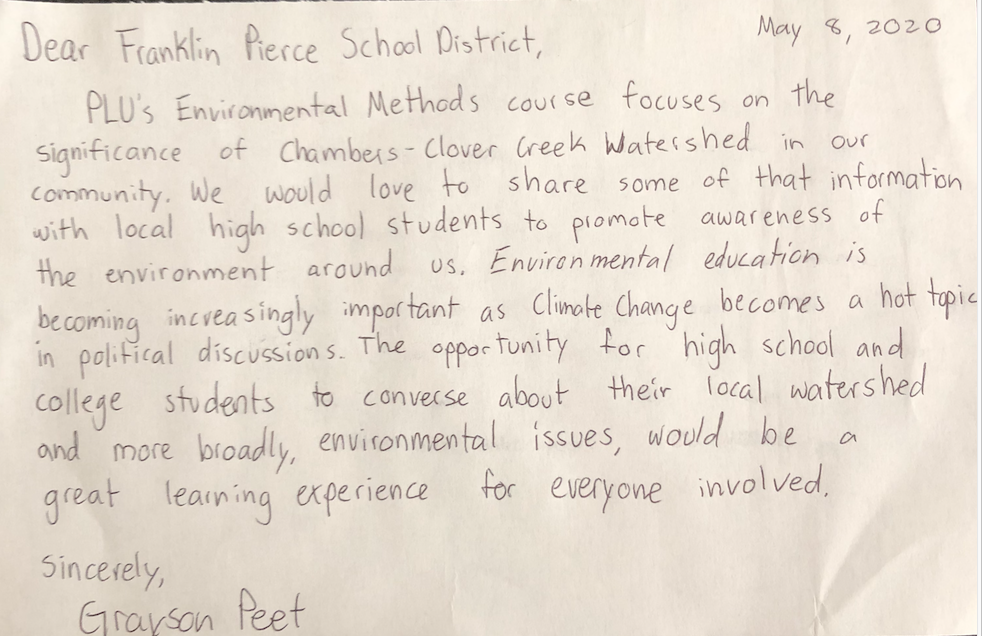 May 8, 2020
Dear Franklin Pierce School District,
PLU's Environmental Methods course focuses on the
significance of Chambers-Clover Creek Watershed in our
community. We would love to share some of that information
with local high school students to promote awareness of
the environment around us. Environmental education is
becoming increasingly important as Climate Change becomes a hot topic
in political discussions. The opportunity for high school and
college students to converse about their local watershed
and more broadly, environmental issues, would be a
great learning experience for everyone involved.
Sincerely,
Grayson Peet